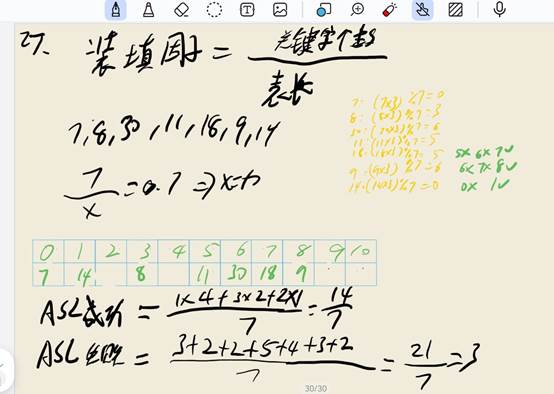 27.
装填因子 = 关键字个数
表长
7,8,30,11,18,9,14
7/x = 0.7 ⇒ x=10
7:(7×3)%7=0
8:(8×3)%7=3
30:(30×3)%7=6
11:(11×3)%7=5
18:(18×3)%7=5 5× 6× 7✓
9:(9×3)%7=6 6× 7× 8✓
14:(14×3)%7=0 0× 1✓
0 1 2 3 4 5 6 7 8 9 10
7 14 8 11 30 18 9
ASL成功 = 1×4+3×2+2×1/7 = 14/7
ASL = 3+2+2+5+4+3+2/7 = 21/7 = 3
30/30